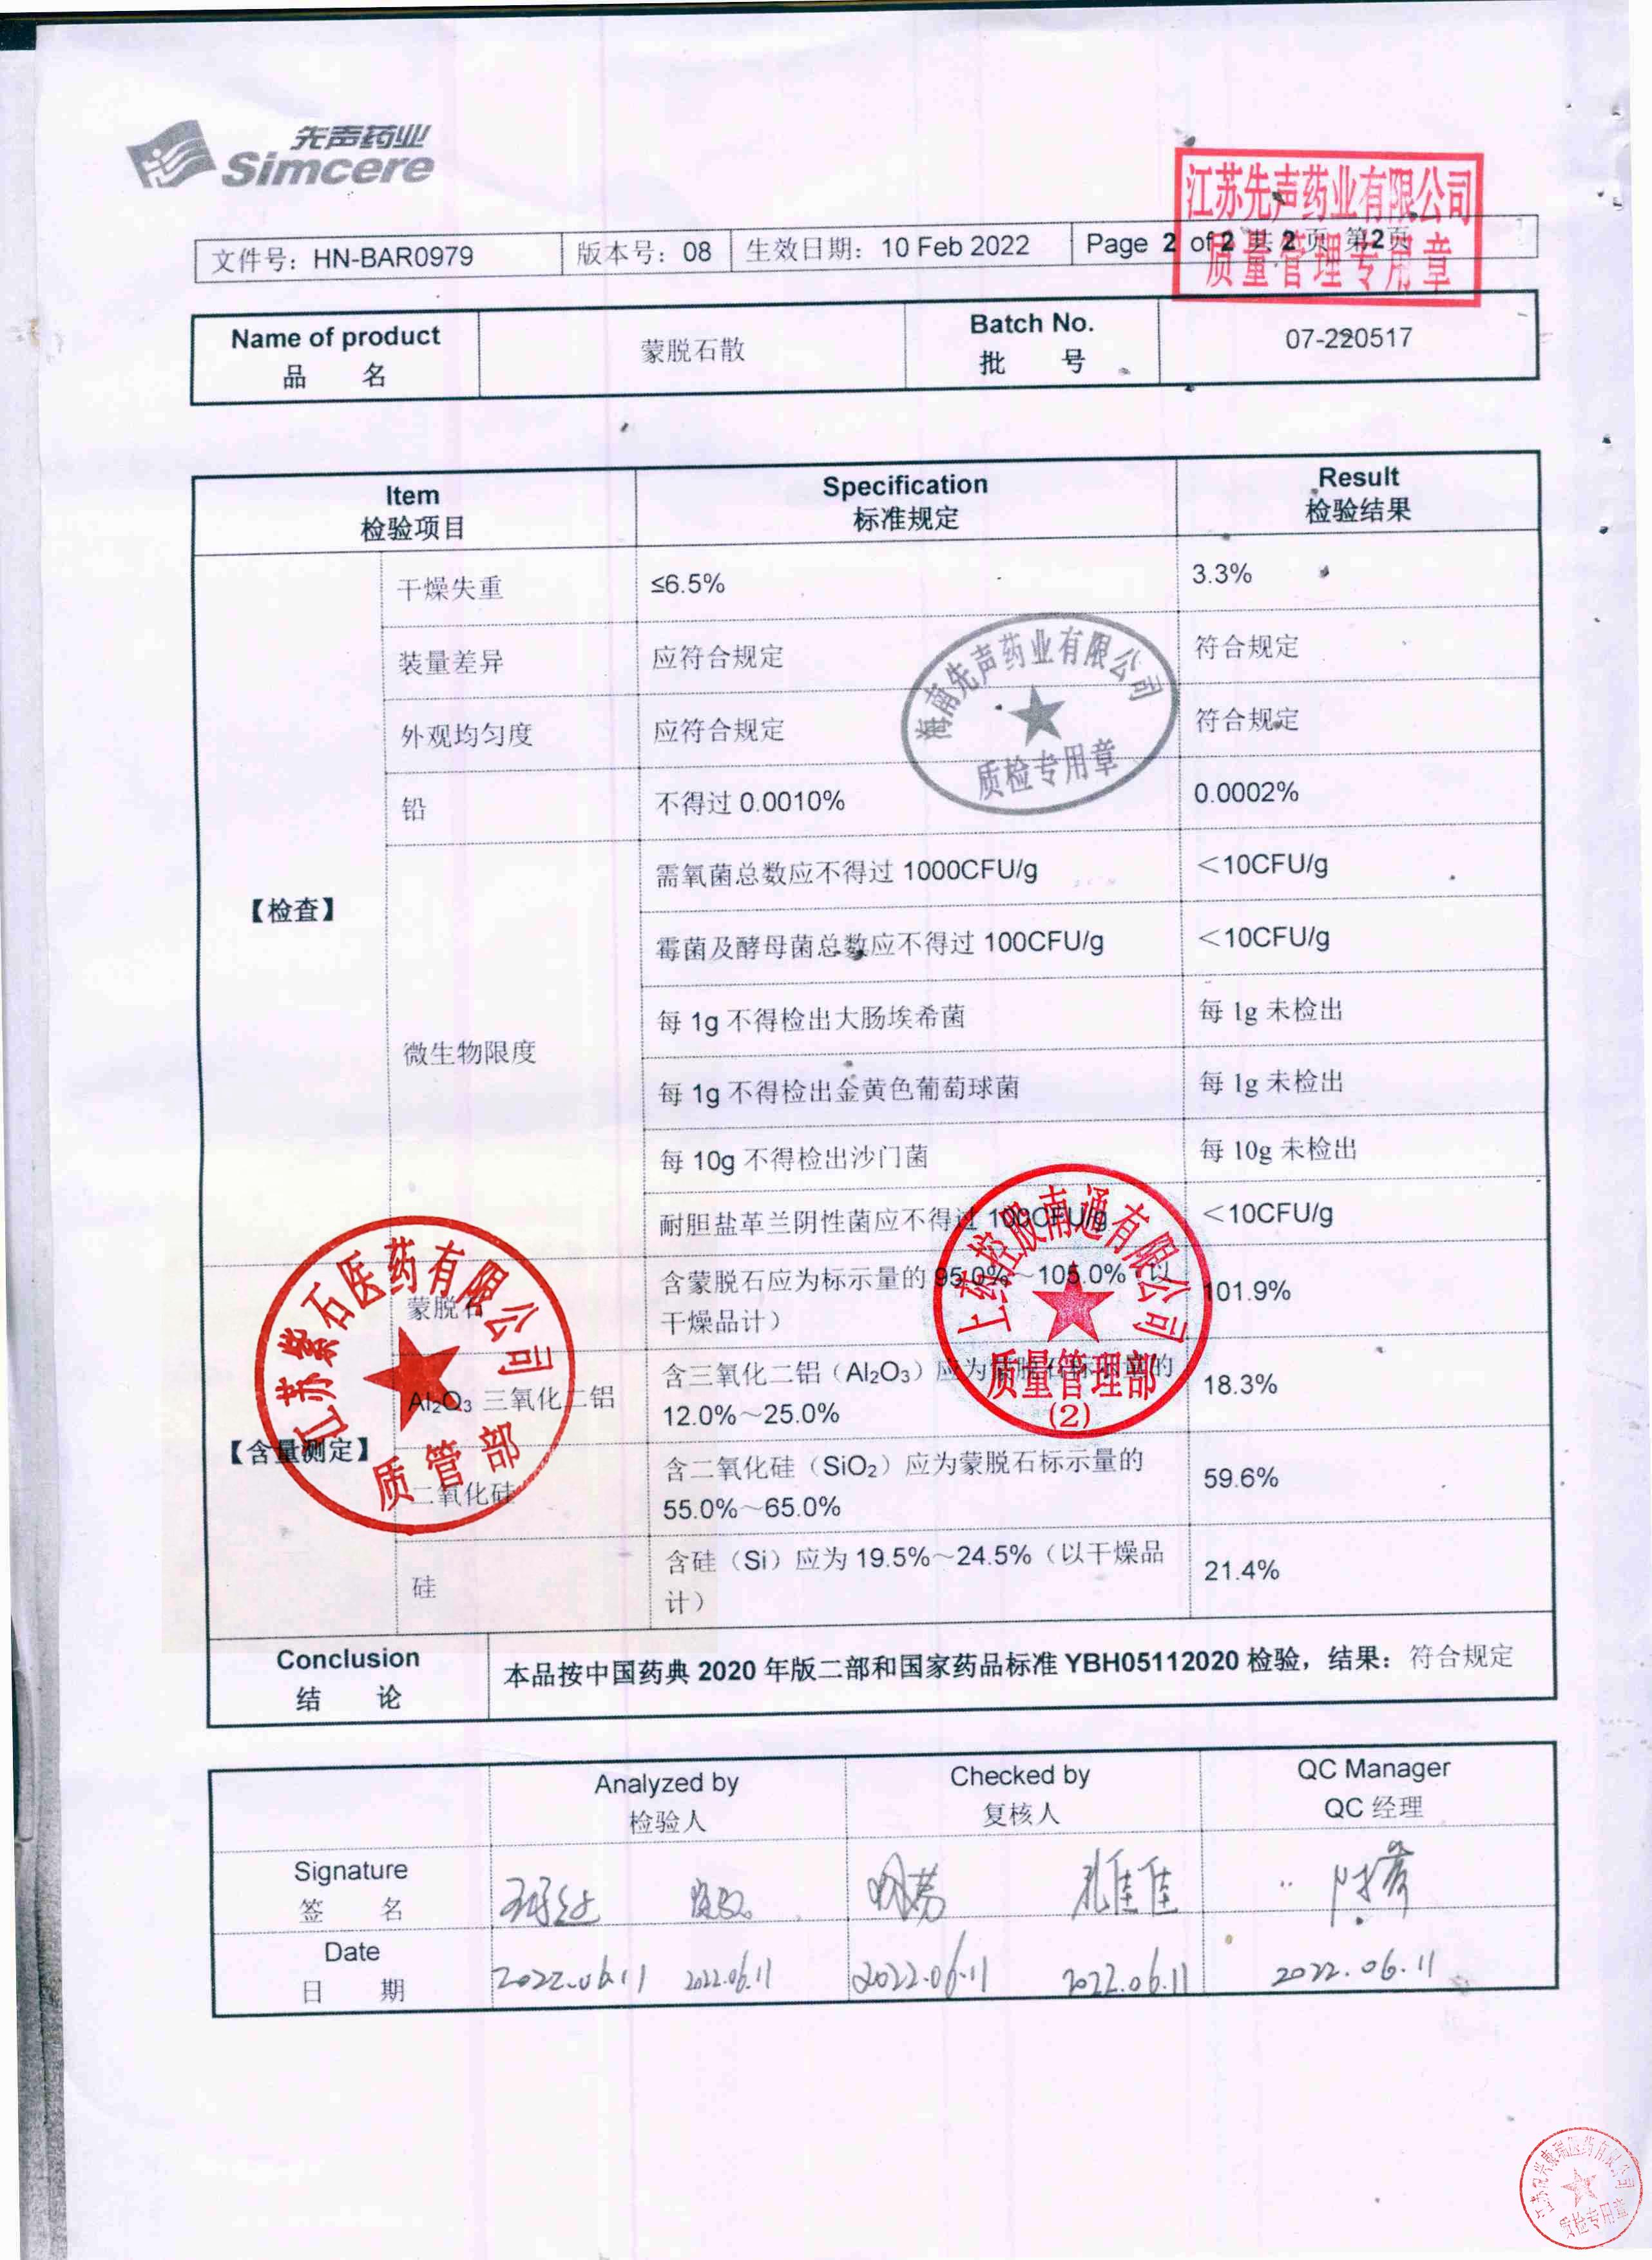 先声药业
Simcere
江苏先声药业有限公司
质量管理专用章
文件号：HN-BAR0979 版本号：08 生效日期：10 Feb 2022 Page 2 of 2 共 2 页 第2页
Name of product
品 名
蒙脱石散
Batch No.
批 号
07-220517
Item
检验项目
Specification
标准规定
Result
检验结果
【检查】
干燥失重 ≤6.5% 3.3%
装量差异 应符合规定 符合规定
外观均匀度 应符合规定 符合规定
铅 不得过 0.0010% 0.0002%
海南先声药业有限公司
质检专用章
微生物限度
需氧菌总数应不得过 1000CFU/g ＜10CFU/g
霉菌及酵母菌总数应不得过 100CFU/g ＜10CFU/g
每 1g 不得检出大肠埃希菌 每 1g 未检出
每 1g 不得检出金黄色葡萄球菌 每 1g 未检出
每 10g 不得检出沙门菌 每 10g 未检出
耐胆盐革兰阴性菌应不得过 100CFU/g ＜10CFU/g
【含量测定】
蒙脱石 含蒙脱石应为标示量的 95.0%～105.0%（以
干燥品计） 101.9%
Al₂O₃ 三氧化二铝 含三氧化二铝（Al₂O₃）应为蒙脱石标示量的
12.0%～25.0% 18.3%
二氧化硅 含二氧化硅（SiO₂）应为蒙脱石标示量的
55.0%～65.0% 59.6%
硅 含硅（Si）应为 19.5%～24.5%（以干燥品
计） 21.4%
医药有限公司
质管部
上药控股南通有限公司
质量管理部
(2)
Conclusion
结 论
本品按中国药典 2020 年版二部和国家药品标准 YBH05112020 检验，结果：符合规定
Analyzed by
检验人
Checked by
复核人
QC Manager
QC 经理
Signature
签 名
孔佳佳
Date
日 期
2022.06.11 2022.06.11 2022.06.11 2022.06.11 2022.06.11
医药有限公司
质检专用章